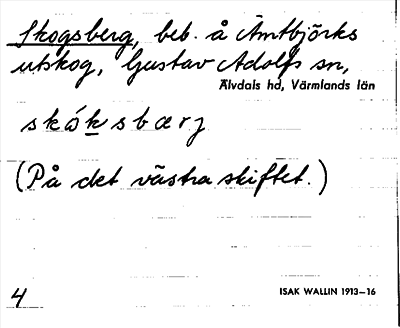 Skogsberg, beb. å Ämtbjörks
utskog, Gustav Adolfs sn,
Älvdals hd, Värmlands län
skó̱ksbærj
(På det västra skiftet.)
4
ISAK WALLIN 1913–16